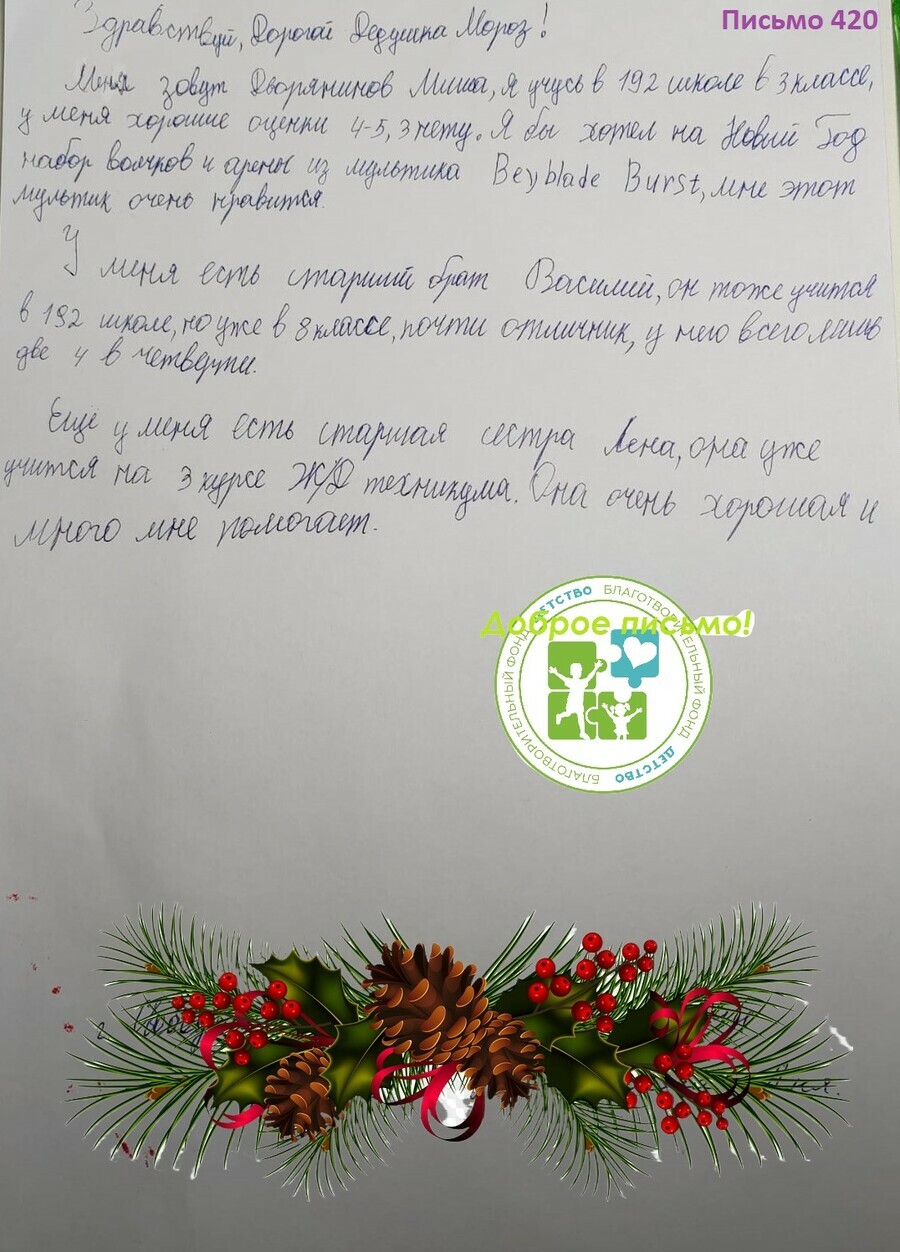 Письмо 420
Здравствуй, Дорогой Дедушка Мороз!
Меня зовут Дворянинов Миша, я учусь в 192 школе в 3 классе,
у меня хорошие оценки 4-5, 3 нету. Я бы хотел на Новый Год
набор волчков и арены из мультика Beyblade Burst, мне этот
мультик очень нравится.
У меня есть старший брат Василий, он тоже учится
в 192 школе, но уже в 8 классе, почти отличник, у него всего лишь
две 4 в четверти.
Ещё у меня есть старшая сестра Лена, она уже
учится на 3 курсе Ж/Д техникума. Она очень хорошая и
много мне помогает.
Доброе письмо!
БЛАГОТВОРИТЕЛЬНЫЙ ФОНД ДЕТСТВО
БЛАГОТВОРИТЕЛЬНЫЙ ФОНД ДЕТСТВО